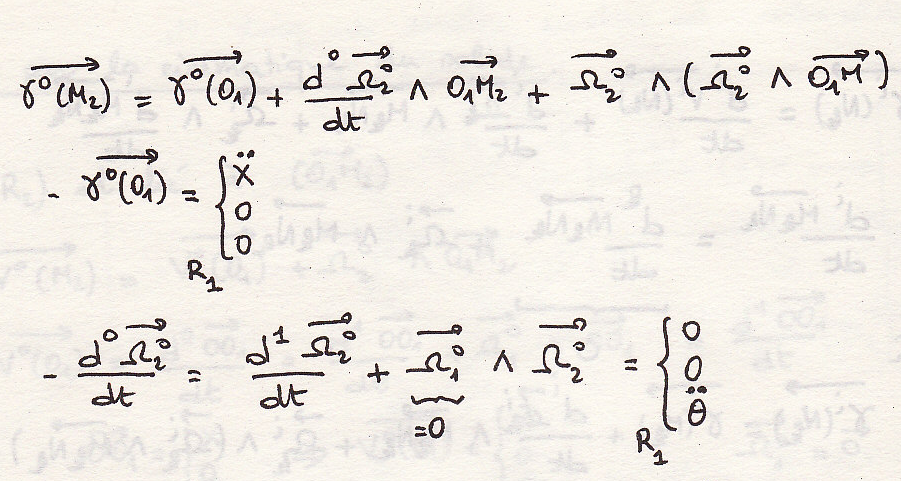 $\overrightarrow{\gamma^0(M_2)} = \overrightarrow{\gamma^0(O_1)} + \frac{d^0 \overrightarrow{\Omega_2^0}}{dt} \wedge \overrightarrow{O_1M_2} + \overrightarrow{\Omega_2^0} \wedge (\overrightarrow{\Omega_2^0} \wedge \overrightarrow{O_1M})$
$- \overrightarrow{\gamma^0(O_1)} = \underset{R_1}{} \begin{cases} \ddot{X} \\ 0 \\ 0 \end{cases}$
$- \frac{d^0 \overrightarrow{\Omega_2^0}}{dt} = \frac{d^1 \overrightarrow{\Omega_2^0}}{dt} + \underbrace{\overrightarrow{\Omega_1^0}}_{=0} \wedge \overrightarrow{\Omega_2^0} = \underset{R_1}{} \begin{cases} 0 \\ 0 \\ \ddot{\theta} \end{cases}$